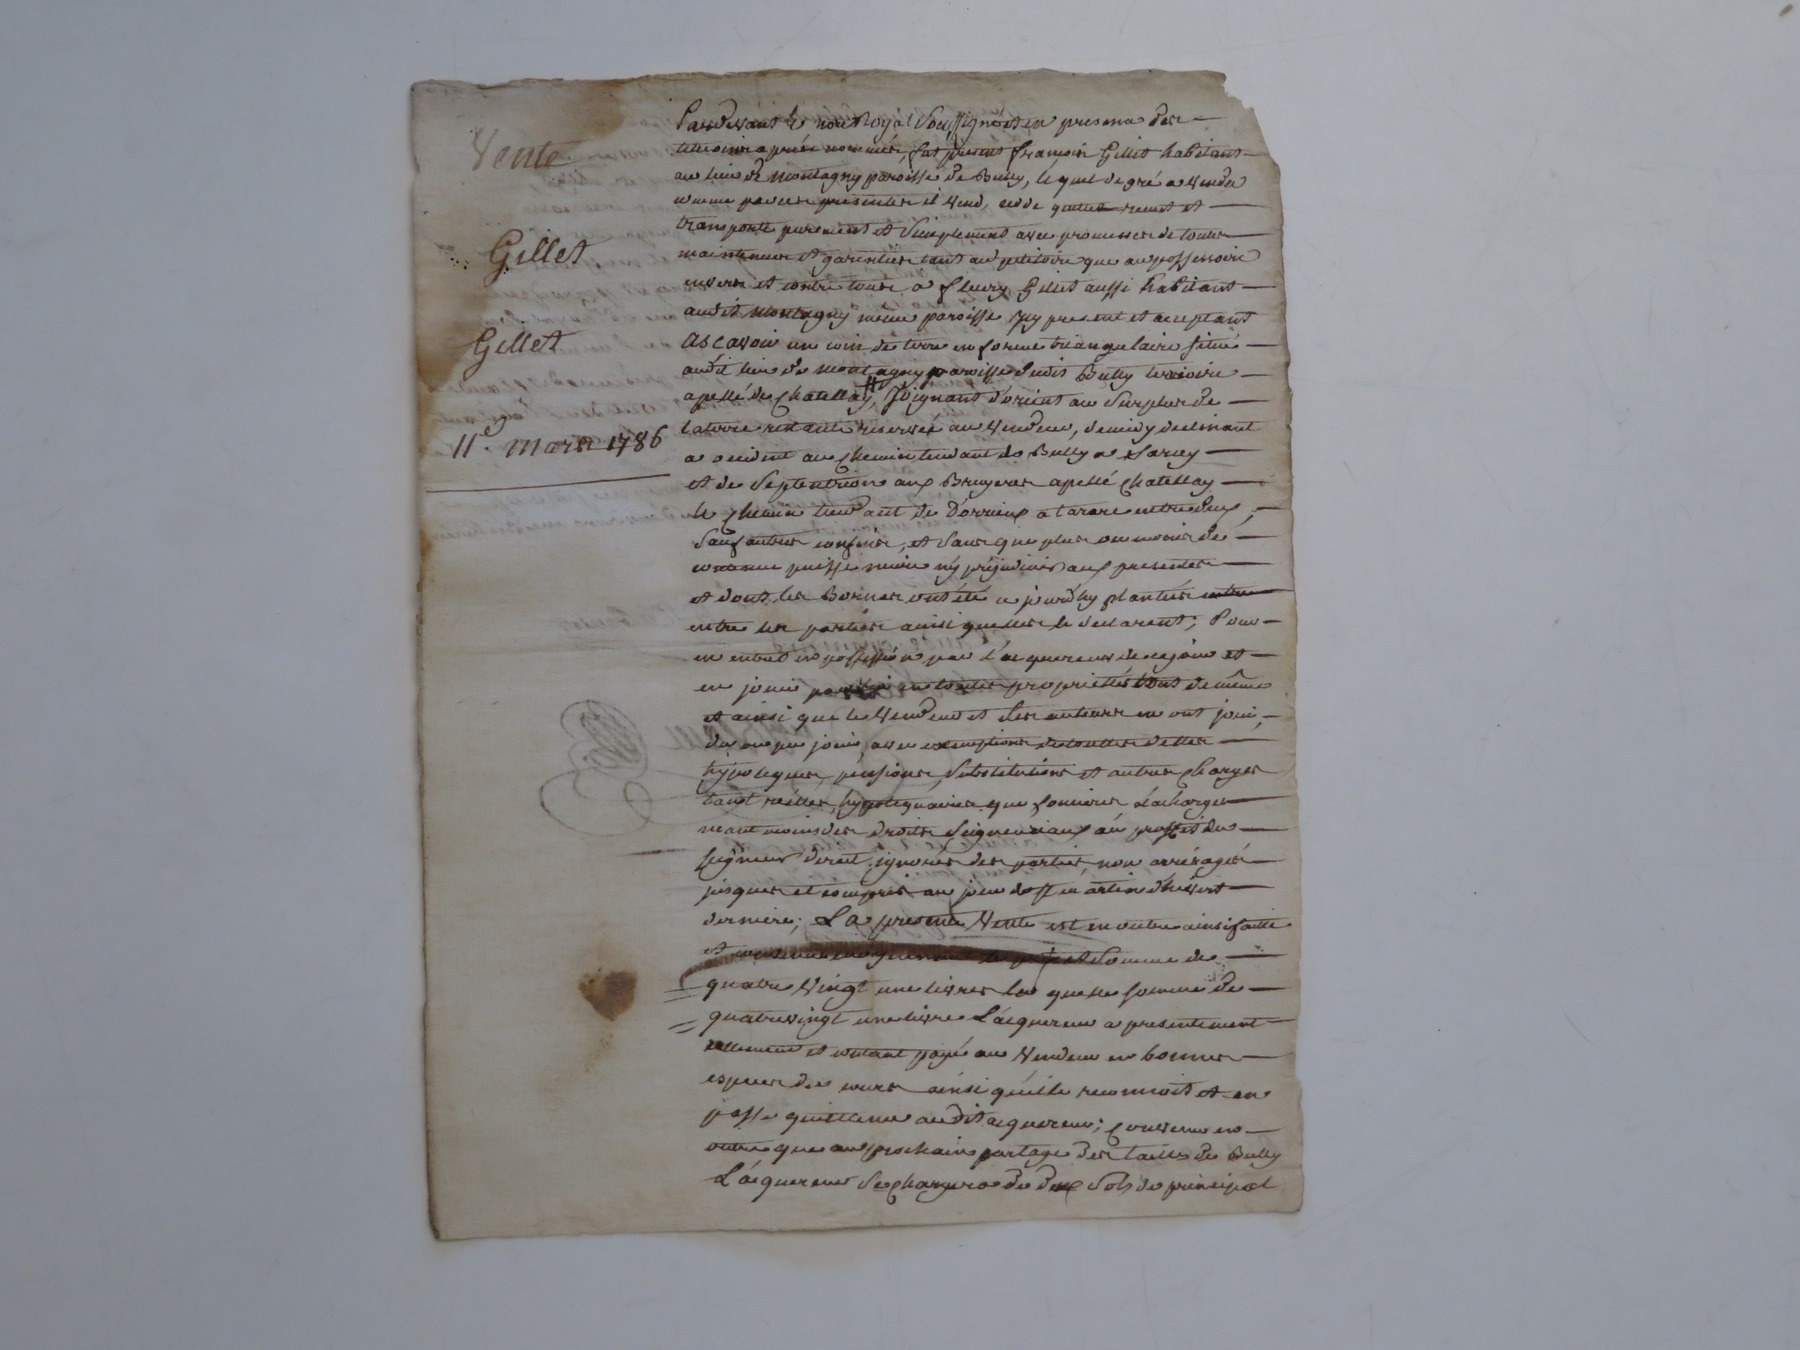 Vente
Gillet
Gillet
11e. Mars 1786
Pardevant le nore Royal Soussigné et en presence des
temoins aprés nommés, fut present françois Gillet habitant
au lieu de Montagny paroisse de Bully, lequel de gré a vendu
comme par ces presentes il vend, cede quitte remet et
transporte purement et Simplement avec promesses de toutes
maintenues et garenties tant au petitoire que au possessoire
envers et contre tous a fleury Gillet aussi habitant
audit Montagny même paroisse icy present et acceptant
Ascavoir un coin de terre en forme triangulaire situé
audit lieu de Montagny paroisse dudit Bully territoire
apellé de Chatellay, Joignant d'orient au Surplus de
la terre restante reservée au vendeur, de midy declinant
a occident au chemin tendant de Bully a Sarcey
et de Septentrion aux Bruyeres apellé Chatellay
le chemin tendant de Dorrieux a tarare entredeux,
Sauf autres confins, et Sans que plus ou moins de
contenue puisse nuire ny préjudicier aux presentes
et dont les Bornes ont été ce jourdhuy plantées entre
entre les parties ainsi quelles le declarent; Pour
en entrer en possession par l'acquereur de ce jour et
en jouir en toutes proprietés tout de même
et ainsi que le vendeur et Ses auteurs en ont joui,
du ou pu jouir, avec exemptions de touttes dettes
hypoteques, pensions, Substitutions et autres charges
tant réelles, hypotequaires que foncieres à la charge
neantmoins des droits Seigneuriaux au proffit du
seigneur direct, ignorés des parties, non arréragés
jusques et compris au jour de st martin d'hivert
dernier; La presente Vente est en outre ainsi faitte
et Somme de
quatre Vingt une livres la quelle somme de
quatrevingt une livre L'acquereur a presentement
réellement et contant payé au vendeur en bonnes
especes de cours ainsi qu'il le reconnoit et en
passe quittance audit acquereur; Convenu en
outre que au prochain partage des tailles de Bully
L'acquereur Se chargera de deux Sols de principal